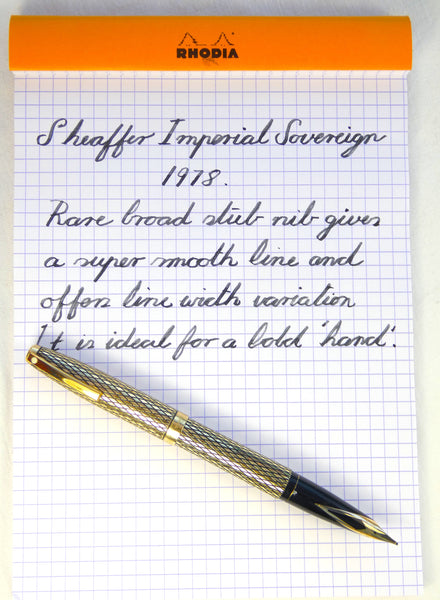 RHODIA
Sheaffer Imperial Sovereign
1978.
Rare broad stub nib gives
a super smooth line and
offers line width variation
It is ideal for a bold 'hand'.